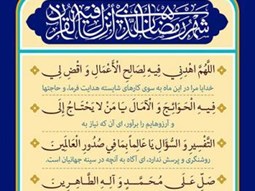 شهر رمضان الذی انزل فیه القرآن
اللّهُمَّ اهْدِنِي فِيهِ لِصَالِحِ الْأَعْمَالِ وَ اقْضِ لِي
خدایا مرا در این ماه به سوی کارهای شایسته هدایت فرما، و حاجتها
فِيهِ الْحَوَائِجَ وَ الْآمَالَ يَا مَنْ لَا يَحْتَاجُ إِلَى
و آرزوهایم را برآور، ای آن که نیاز به
التَّفْسِيرِ وَ السُّؤَالِ يَا عَالِماً بِمَا فِي صُدُورِ الْعَالَمِينَ
روشنگری و پرسش ندارد، ای آگاه به آنچه در سینه جهانیان است.
صَلِّ عَلَى مُحَمَّدٍ وَ آلِهِ الطَّاهِرِينَ